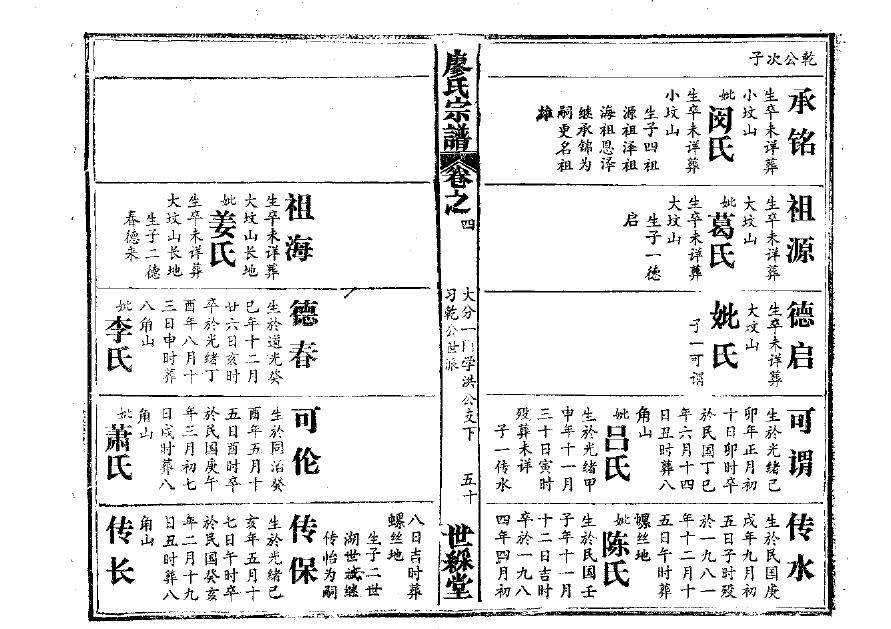 乾公次子
承铭
生卒未详葬
小坟山
妣
闵氏
生卒未详葬
小坟山
生子四祖
源祖泽祖
海祖恩泽
继承锦为
嗣更名祖
雄
祖源
生卒未详葬
大坟山
妣
葛氏
生卒未详葬
大坟山
生子一德
启
德启
生卒未详葬
大坟山
妣氏
子一可谓
可谓
生於光绪己
卯年正月初
十日卯时卒
於民国丁巳
年六月十四
日丑时葬八
角山
妣
吕氏
生於光绪甲
申年十一月
三十日寅时
殁葬未详
子一传水
传水
生於民国庚
戌年九月初
五日子时殁
於一九八一
年十二月十
五日午时葬
螺丝地
妣
陈氏
生於民国壬
子年十一月
十二日吉时
卒於一九八
四年四月初
廖氏宗譜
卷之四
大分一门学洪公支下
习乾公世派
五十
世綵堂
祖海
生卒未详葬
大坟山长地
妣
姜氏
生卒未详葬
大坟山长地
生子二德
春德来
德春
生於道光癸
巳年十二月
廿六日亥时
卒於光绪丁
酉年八月十
三日申时葬
八角山
妣
李氏
可伦
生於同治癸
酉年五月十
五日酉时卒
於民国庚午
年三月初七
日戌时葬八
角山
妣
萧氏
八日吉时葬
螺丝地
生子二世
湖世城继
传怡为嗣
传保
生於光绪己
亥年五月十
七日午时卒
於民国癸亥
年二月十九
日丑时葬八
角山
传长